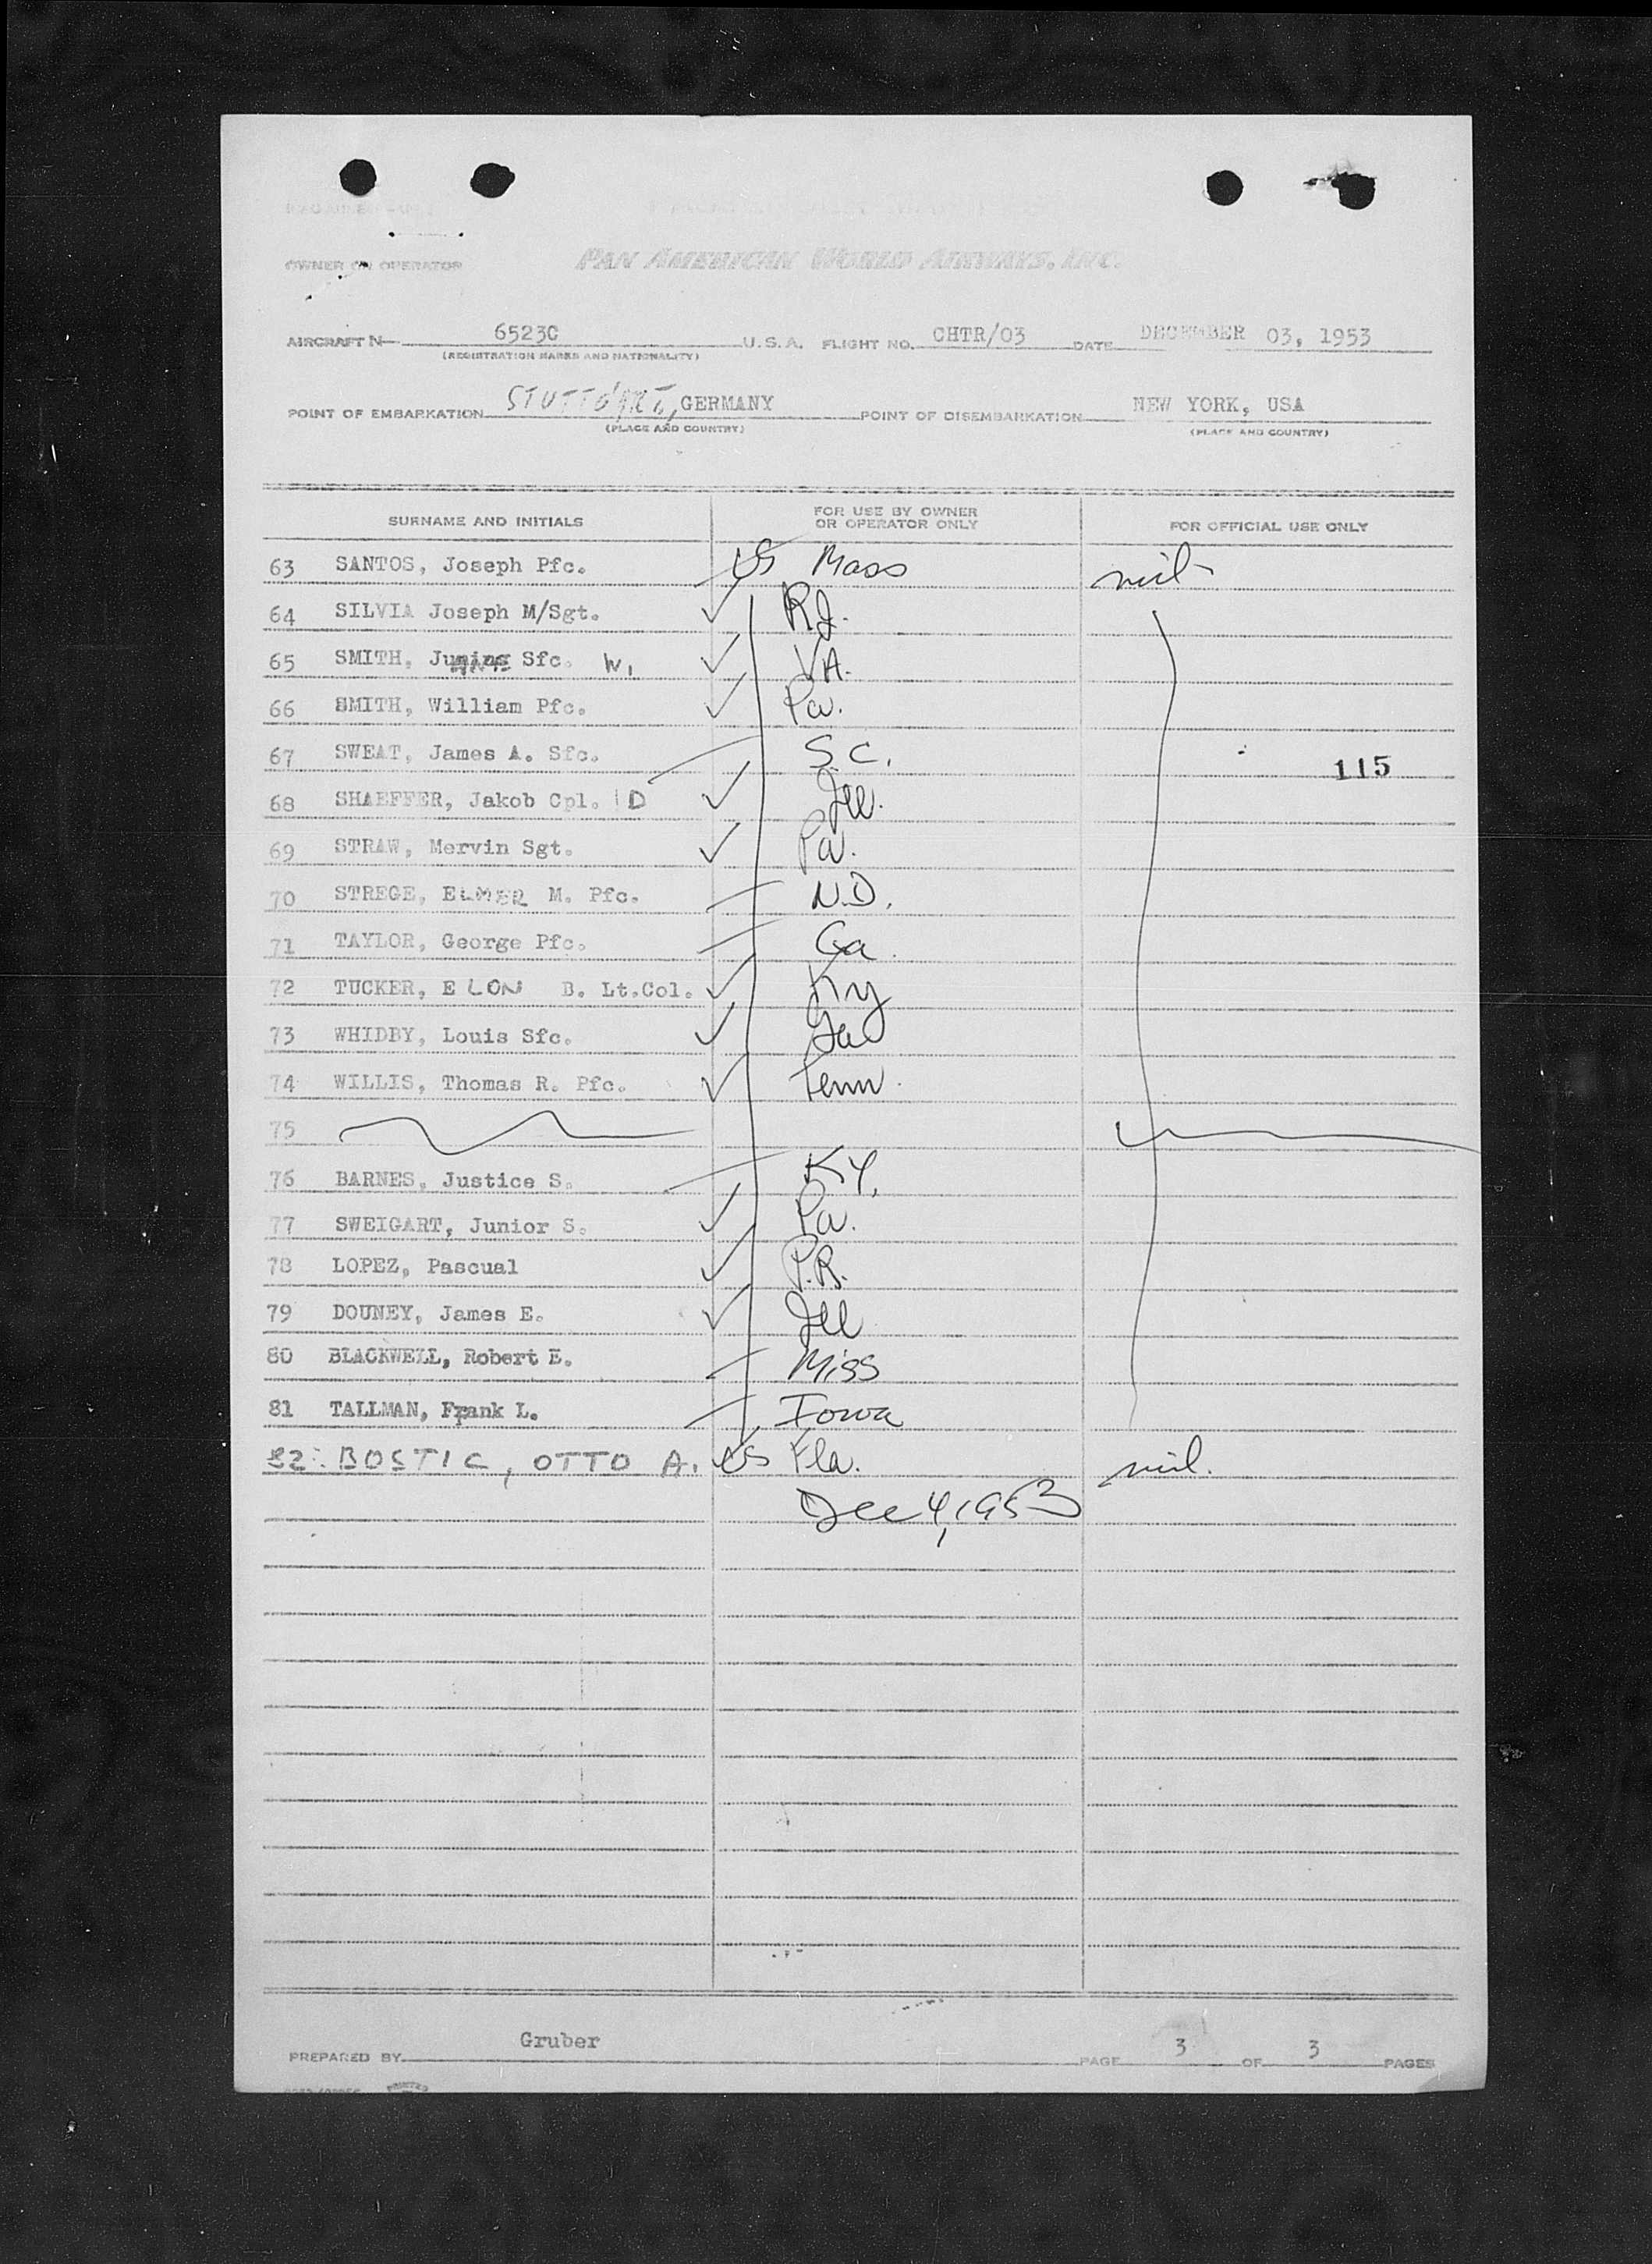 OWNER OR OPERATOR PAN AMERICAN WORLD AIRWAYS, INC.
AIRCRAFT N— 6523C U.S.A. FLIGHT NO. CHTR/03 DATE DECEMBER 03, 1953
(REGISTRATION MARKS AND NATIONALITY)
POINT OF EMBARKATION STUTTGART, GERMANY POINT OF DISEMBARKATION NEW YORK, USA
(PLACE AND COUNTRY) (PLACE AND COUNTRY)
SURNAME AND INITIALS FOR USE BY OWNER OR OPERATOR ONLY FOR OFFICIAL USE ONLY
63 SANTOS, Joseph Pfc. US Mass mil
64 SILVIA Joseph M/Sgt. R.I.
65 SMITH, Sfc. W. VA.
66 SMITH, William Pfc. Pa.
67 SWEAT, James A. Sfc. S.C.
115
68 SHAEFFER, Jakob Cpl. D Ill.
69 STRAW, Mervin Sgt. Pa.
70 STREGE, ELMER M. Pfc. N.D.
71 TAYLOR, George Pfc. Ga.
72 TUCKER, ELON B. Lt.Col. Ky
73 WHIDBY, Louis Sfc. Ga
74 WILLIS, Thomas R. Pfc. Tenn.
75
76 BARNES, Justice S. KY.
77 SWEIGART, Junior S. Pa.
78 LOPEZ, Pascual P.R.
79 DOUNEY, James E. Ill
80 BLACKWELL, Robert E. Miss
81 TALLMAN, Frank L. Iowa
82. BOSTIC, OTTO A. US Fla. mil.
Dec 4, 1953
PREPARED BY Gruber PAGE 3 OF 3 PAGES